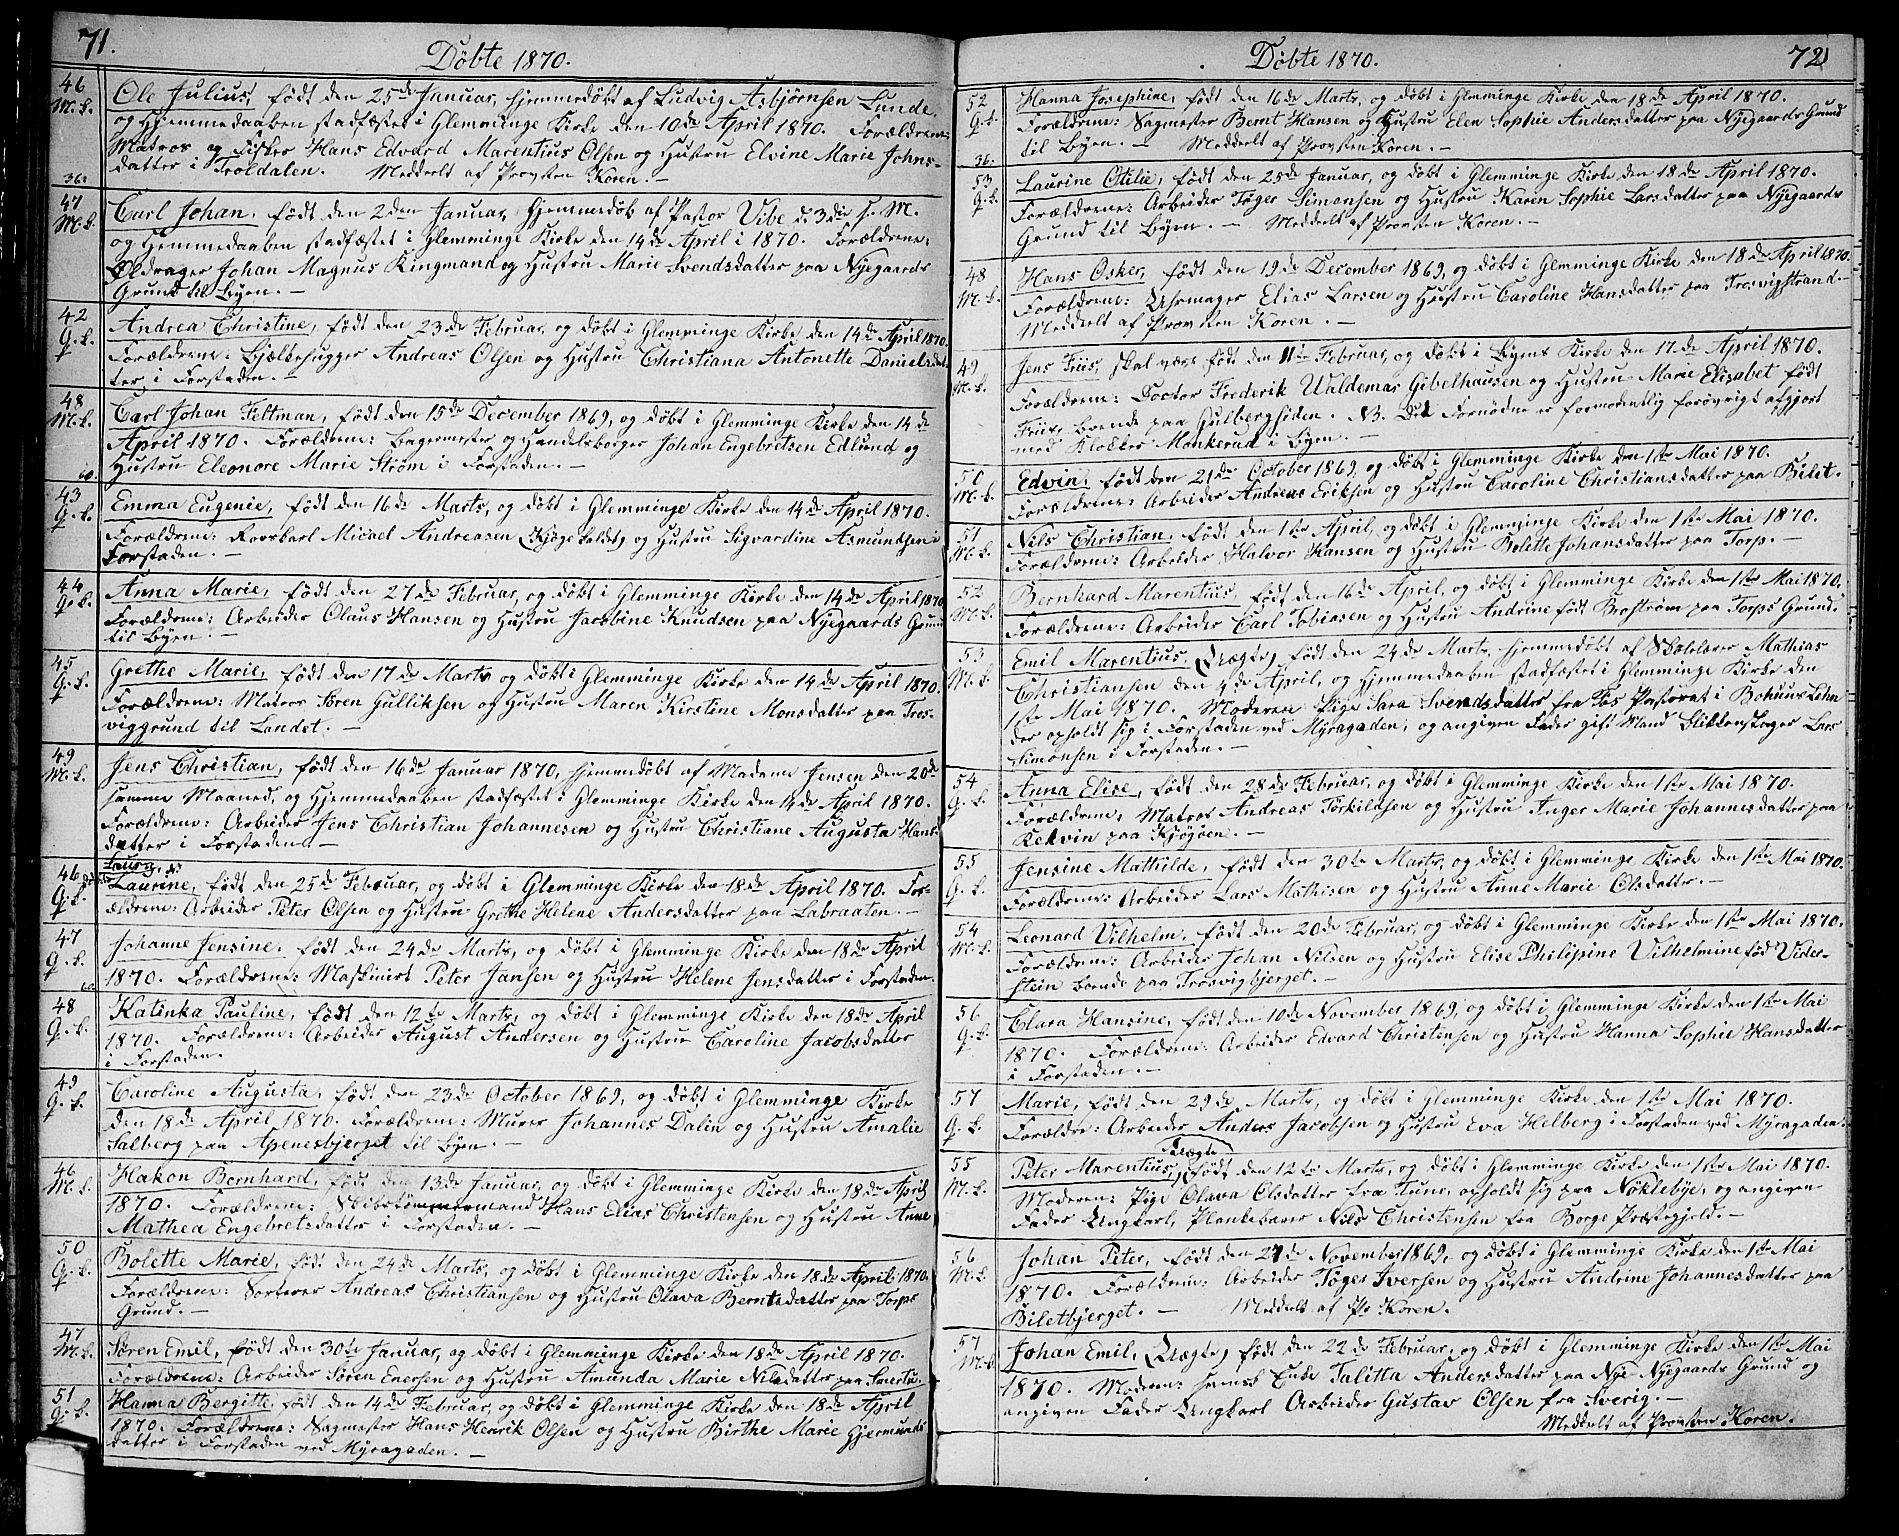 71.
Döbte 1870.
46 M. k. Ole Julius, födt den 25de Januar, hjemmedöbt af Ludvig Asbjörnsen Lunde,
og Hjemmedaaben stadfæstet i Glemminge Kirke den 10de April 1870. Forældrene:
Matros og Fisker Hans Edvard Marentius Olsen og Hustru Elvine Marie Johns-
36. datter i Troldalen. Meddelt af Provsten Koren. –
47 M. k. Carl Johan, födt den 2den Januar, hjemmedöb af Pastor Vibe d: 3die s. M.
og Hjemmedaaben stadfæstet i Glemminge Kirke den 14de April i 1870. Forældrene:
Öldrager Johan Magnus Kingmand og Hustru Marie Svendsdatter paa Nyegaards
Grund til Byen. –
42 Q. k. Andrea Christine, födt den 23de Februar, og döbt i Glemminge Kirke den 14de April 1870.
Forældrene: Bjælkehugger Andreas Olsen og Hustru Christiana Antonette Danielsdat-
ter, i Forstaden. –
48 M. k. Carl Johan Feltman, födt den 15de December 1869, og döbt i Glemminge Kirke den 14de
April 1870. Forældrene: Bagermester og Handelsborger Johan Engebretsen Edlund og
Hustru Eleonore Marie Ström i Forstaden. –
43 Q. k. Emma Eugenie, födt den 16de Marts, og döbt i Glemminge Kirke den 14de April 1870.
Forældrene: Rorskarl Micael Andreasen (Kjöge kaldet) og Hustru Sigvardine Asmundsen i
Forstaden. –
44 Q. k. Anna Marie, födt den 27de Februar, og döbt i Glemminge Kirke den 14de April 1870.
Forældrene: Arbeider Olaus Hansen og Hustru Jacobine Knudsen paa Nyegaards Grund
til Byen. –
45 Q. k. Grethe Marie, födt den 17de Marts og döbt i Glemminge Kirke den 14de April 1870.
Forældrene: Matros Sören Gulliksen og Hustru Maren Kirstine Monsdatter paa Tros-
viggrund til Landet. –
49 M. k. Jens Christian, födt den 16de Januar 1870, hjemmedöbt af Madame Jensen den 20de
samme Maaned, og Hjemmedaaben stadfæstet i Glemminge Kirke den 14de April 1870.
Forældrene: Arbeider Jens Christian Johannesen og Hustru Christiane Augusta Hans-
datter i Forstaden. –
46 Q. k. Laurine, födt den 25de Februar, og döbt i Glemminge Kirke den 18de April 1870. For-
ældrene: Arbeider Peter Olsen og Hustru Grethe Helene Andersdatter paa Labraaten. –
47 Q. k. Johanne Jensine, födt den 24de Marts, og döbt i Glemminge Kirke den 18de April
1870. Forældrene: Maskinist Peter Jansen og Hustru Helene Jensdatter i Forstaden.
48 Q. k. Katinka Pauline, födt den 12te Marts, og döbt i Glemminge Kirke den 18de April
1870. Forældrene: Arbeider August Andersen og Hustru Caroline Jacobsdatter
i Forstaden.
49 Q. k. Caroline Augusta, födt den 23de October 1869, og döbt i Glemminge Kirke
den 18de April 1870. Forældrene: Murer Johannes Dalin og Hustru Amalie
Salberg paa Apenesbjerget til Byen. –
46 M. k. Hakon Bernhard, födt den 13de Januar, og döbt i Glemminge Kirke den 18de April
1870. Forældrene: Skibstömmermand Hans Elias Christensen og Hustru Anne
Mathea Engebretsdatter i Forstaden. –
50 Q. k. Bolette Marie, födt den 24de Marts, og döbt i Glemminge Kirke den 18de April 1870.
Forældrene: Sorterer Andreas Christiansen og Hustru Olava Berntsdatter paa Torps
Grund. –
47 M. k. Sören Emil, födt den 30te Januar, og döbt i Glemminge Kirke den 18de April 1870.
Forældrene: Arbeider Sören Enersen og Hustru Amunda Marie Nilsdatter paa
51 Q. k. Hanna Bergitte, födt den 14de Februar, og döbt i Glemminge Kirke den 18de April
1870. Forældrene: Sagmester Hans Henrik Olsen og Hustru Birthe Marie Gjermunds
datter i Forstaden ved Myragaden. –
72
Döbte 1870.
52 Q. k. Hanna Josephine, födt den 16de Marts, og döbt i Glemminge Kirke den 18de April 1870.
Forældrene: Sagmester Bernt Hansen og Hustru Elen Sophie Andersdatter paa Nyegaards Grund
36. til Byen. – Meddelt af Provsten Koren. –
53 Q. k. Laurine Otilie, födt den 25de Januar, og döbt i Glemminge Kirke den 18de April 1870.
Forældrene: Arbeider Töger Simonsen og Hustru Karen Sophie Larsdatter paa Nyegaards
Grund til Byen. – Meddelt af Provsten Koren. –
48 M. k. Hans Osker, födt den 19de December 1869, og döbt i Glemminge Kirke den 18de April 1870.
Forældrene: Uhrmager Elias Larsen og Hustru Caroline Hansdatter paa Trosvigstrand. –
Meddelt af Provsten Koren. –
49 M. k. Jens Friis, skal være födt den 11te Februar, og döbt i Byens Kirke den 17de April 1870.
Forældrene: Doctor Frederik Valdemar Gibelhausen og Hustru Marie Elisabet födt
Friis, boende paa Gulbergsiden. NB. Det Fornödne er formodentlig forövrigt afgjort
med Klokker Monkerud i Byen. –
50 M. k. Edvin, födt den 21de October 1869, og döbt i Glemminge Kirke den 1ste Mai 1870.
Forældrene: Arbeider Andreas Eriksen og Hustru Caroline Christiansdatter paa Bilet. –
51 M. k. Nils Christian, födt den 1ste April, og döbt i Glemminge Kirke den 1ste Mai 1870.
Forældrene: Arbeider Halvor Hansen og Hustru Bolette Johansdatter paa Torp. –
52 M. k. Bernhard Marentius, födt den 16de April, og döbt i Glemminge Kirke den 1ste Mai 1870.
Forældrene: Arbeider Carl Tobiasen og Hustru Andrine födt Broström paa Torps Grund.
53 M. k. Emil Marentius, (Uægte) födt den 24de Marts, hjemmedöbt af Skolelærer Mathias
Christiansen den 4de April, og Hjemmedaaben stadfæstet i Glemminge Kirke den
1ste Mai 1870. Moderen Pige Sara Svendsdatter fra Fos Pastorat i Bohuus Lehn
der opholdt sig i Forstaden ved Myragaden, og angiven Fader gift Mand Blikkenslager Lars
Simonsen i Forstaden. –
54 Q. k. Anna Elise, födt den 28de Februar, og döbt i Glemminge Kirke den 1ste Mai 1870.
Forældrene: Matros Andreas Törkildsen og Hustru Inger Marie Johannesdatter paa
Kekvin paa Kjögöen. –
55 Q. k. Jensine Mathilde, födt den 30te Marts, og döbt i Glemminge Kirke den 1ste Mai 1870.
Forældrene: Arbeider Lars Mathisen og Hustru Anne Marie Olsdatter. –
54 M. k. Leonard Vilhelm, födt den 20de Februar, og döbt i Glemminge Kirke den 1ste Mai 1870.
Forældrene: Arbeider Johan Nilsen og Hustru Elise Philipine Vilhelmine föd Vider-
stein boende paa Trosvigbjerget. –
56 Q. k. Clara Hansine, födt den 10de November 1869, og döbt i Glemminge Kirke den 1ste Mai
1870. Forældrene: Arbeider Edvard Christensen og Hustru Hanna Sophie Hansdatter
i Forstaden. –
57 Q. k. Marie, födt den 29de Marts, og döbt i Glemminge Kirke den 1ste Mai 1870.
Forældre: Arbeider Anders Jacobsen og Hustru Eva Helberg i Forstaden ved Myragaden.
55 M. k. Peter Marentius, (Uægte) födt den 12te Marts, og döbt i Glemminge Kirke den 1ste Mai 1870.
Moderen: Pige Olava Olsdatter fra Tune, opholdt sig paa Nöklebye, og angiven
Fader Ungkarl, Plankebærer Nils Christensen fra Borge Præstegjeld. –
56 M. k. Johan Peter, födt den 27de November 1869, og döbt i Glemminge Kirke den 1ste Mai
1870. Forældrene: Arbeider Töger Iversen og Hustru Andrine Johannesdatter paa
Biletbjerget. – Meddelt af Pr Koren.
57 M. k. Johan Emil, (Uægte) födt den 22de Februar, og döbt i Glemminge Kirke den 1ste Mai
1870. Moderen: Enke Talitta Andersdatter paa Nye Nyegaards Grund og
angiven Fader Ungkarl Arbeider Gustav Olsen fra Sverig. –
Meddelt af Provsten Koren.